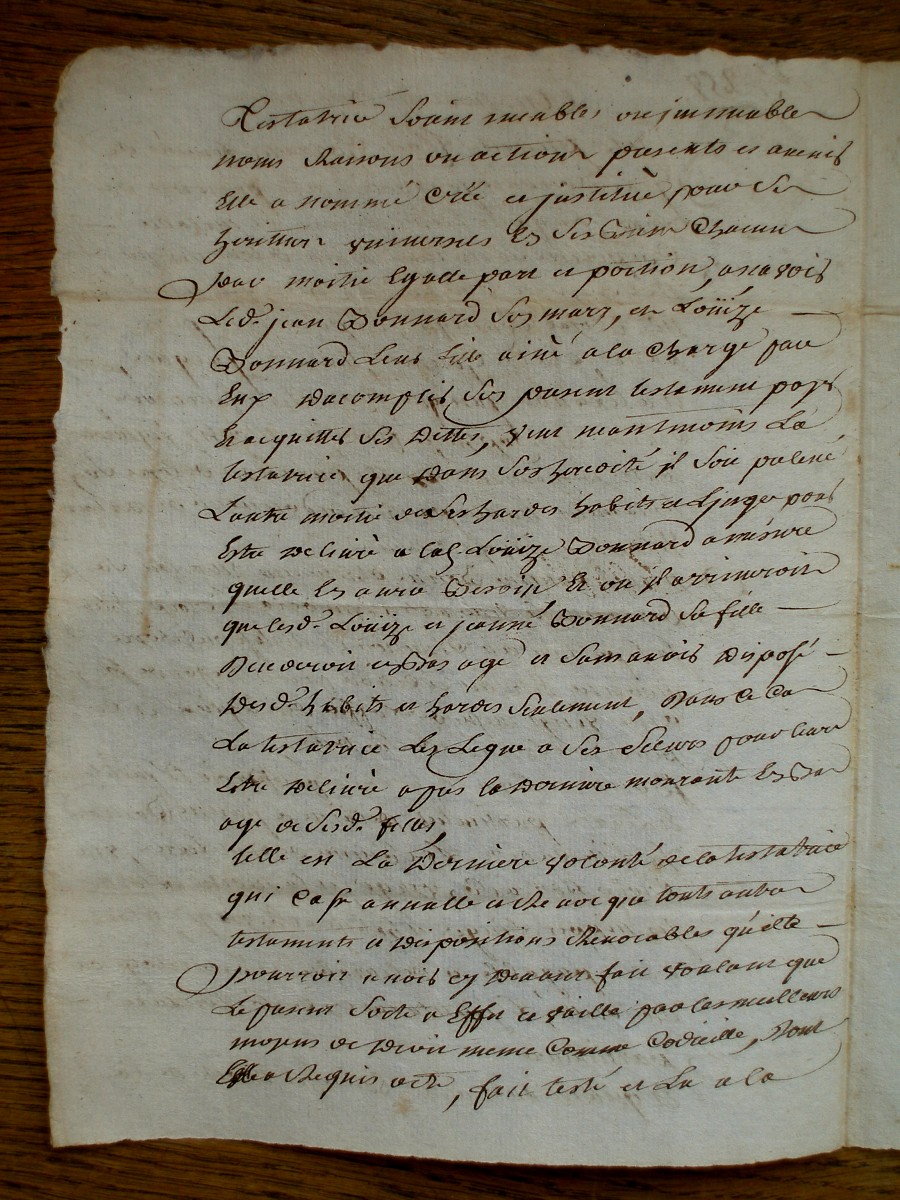 testatrice soient meubles ou immeubles
noms raisons ou actions presents et avenir
Elle a nommé Créé et justitué pour ses
heritiers universels Les Chacun
pour moitié Egalle part et portion, ascavoir
Led. jean Donnard son mary, et Loüize
Donnard Leur fille ainé a la Charge par
Eux dacomplir son present testament payer
Et acquitter ses dettes, veut neantmoins La
testatrice que dans son heredité jl soit
Lautre moitié de ses hardes habits et Linges pour
Estre delivré a lad. Loüize Donnard a mesure
quelle En aura Besoin Et ou jl arriveroit
que lesd. Loüize et jeanne Donnard sa fille
Decederoit En Bas age et sans avoir disposé
desd. habits et hardes seulement, Dans Ce Cas
La testatrice Les Legue a ses sœurs pour leur
Estre delivré apres la derniere mourante En Bas
age de sesd. filles,
telle est La derniere volonté de la testatrice
qui Casse annulle et revoque touts autres
testaments et dispositions revocables qu'elle
pourroit avoir cy devant fait voulant que
Le present sorte a Effet et vaille par les meilleurs
moyens de droit meme Comme Codicille, Dont
Elle a requis acte, fait testé et Lu a la